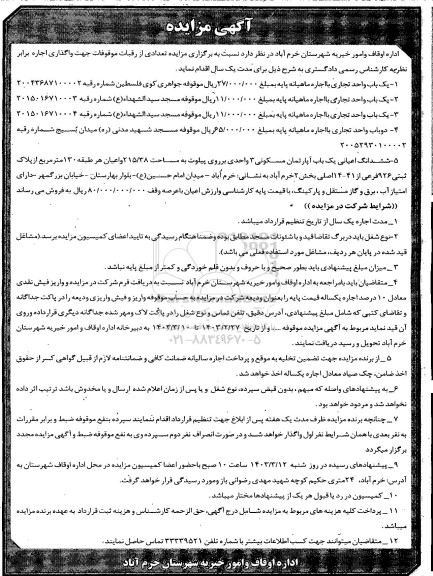 آگهی مزایده
اداره اوقاف وامور خیریه شهرستان خرم آباد در نظر دارد نسبت به برگزاری مزایده تعدادی از رقبات موقوفات جهت واگذاری اجاره برابر
نظریه کارشناس رسمی دادگستری به شرح ذیل برای مدت یک سال اقدام نماید.
۱-یک باب واحد تجاری بااجاره ماهیانه پایه بمبلغ ۲۷/۰۰۰/۰۰۰ریال موقوفه جواهری کوی فلسطین شماره رقبه ۲۰۰۴۳۶۸۷۱۰۰۰۰۲
۲-یک باب واحد تجاری بااجاره ماهیانه پایه بمبلغ ۱۱/۰۰۰/۰۰۰ریال موقوفه مسجد سیدالشهداء(ع) شماره رقبه ۲۰۱۵۰۱۶۷۱۰۰۰۳
۳-یک باب واحد تجاری بااجاره ماهیانه پایه بمبلغ ۱۱/۰۰۰/۰۰۰ریال موقوفه مسجد سیدالشهداء(ع) شماره رقبه ۲۰۱۵۰۱۶۷۱۰۰۰۴
۴-دوباب واحد تجاری بااجاره ماهیانه پایه بمبلغ ۶۵/۰۰۰/۰۰۰ریال موقوفه مسجد شهید مدنی (ره) میدان بسیج شماره رقبه
۲۰۰۵۲۹۳۰۱۰۰۰۰۲
۵-ششدانگ اعیانی یک باب آپارتمان مسکونی۳ واحدی برروی پیلوت به مساحت ۲۱۵/۳۸ واعیان هر طبقه ۱۲۰مترمربع ازپلاک
ثبتی۹۲۶فرعی از ۴۱-۱۴اصلی بخش ۲خرم آباد به نشانی: خرم آباد - میدان امام حسین(ع)-بلوار بهارستان - خیابان بزرگمهر -دارای
امتیاز آب ، برق و گاز مستقل و پارکینگ، با قیمت پایه کارشناسی وارزش اعیان باعرصه وقف ۸۰/۰۰۰/۰۰۰/۰۰۰ریال به فروش می رساند
((شرایط شرکت در مزایده ))
۱_مدت اجاره یک سال از تاریخ تنظیم قرارداد میباشد .
۲-نوع شغل باید دربرگ تقاضاقید و باشئونات مسجد مطابق بوده وضمنا هنگام رسیدگی به تایید اعضای کمیسیون مزایده برسد.(مشاغل
قید شده در پایان هر ردیف، مشاغل مورد استفاده فعلی می باشد).
۳_میزان مبلغ پیشنهادی باید بطور صحیح و با حروف و بدون قلم خوردگی و کمتر از مبلغ پایه نباشد.
۴_متقاضیان بایدبامراجعه به اداره اوقاف وامور خیریه شهرستان خرم آباد نسبت به دریافت فرم شرکت در مزایده و واریز فیش نقدی
معادل ۱۰ درصد اجاره یکساله قیمت پایه را بعنوان ودیعه شرکت در مزایده به حساب موقوفه واریز و فیش واریزی ودیعه را در پاکت جداگانه
و تقاضای کتبی که شامل مبلغ پیشنهادی، آدرس دقیق، تلفن تماس و نوع شغل را در پاکت لاک ومهر شده جداگانه دیگری قرارداده و روی
آن قید نماید مربوط به آگهی مزایده موقوفه .... واز تاریخ ۱۴۰۳/۲/۲۷ تا ۱۴۰۳/۳/۱۰ به دبیرخانه اداره اوقاف و امور خیریه شهرستان
خرم آباد تحویل و رسید دریافت نمایند.
۵_از برنده مزایده جهت تضمین تخلیه به موقع و پرداخت اجاره سالیانه ضمانت کافی و ضمانتنامه لازم از قبیل گواهی کسر از حقوق
اخذ ضامن، چک صیاد معادل اجاره یکساله اخذ خواهد شد.
۶_به پیشنهادهای واصله که مبهم، بدون قبض سپرده، نوع شغل و یا پس از زمان اعلام شده ارسال و یا مخدوش باشد ترتیب اثر داده
نخواهد شد و مردود خواهد بود.
۷_چنانچه برنده مزایده ظرف مدت یک هفته پس از ابلاغ جهت تنظیم قرارداد اقدام ننمایند سپرده بنفع موقوفه ضبط و برابر مقررات
به نفر بعدی با همان شرایط نفر اول واگذار خواهد شد و در صورت انصراف نفر دوم سپرده وی به نفع موقوفه ضبط و آگهی مزایده مجدد
برگزار میگردد
۹_پیشنهادهای رسیده در روز شنبه ۱۴۰۳/۳/۱۲ ساعت ۱۰ صبح باحضور اعضا کمیسیون مزایده در محل اداره اوقاف شهرستان به
آدرس: خرم آباد، ۲۴متری حکیم کوچه شهید مهدی رضوانی باز ومورد رسیدگی قرار خواهد گرفت.
۱۰_کمیسیون در رد یا قبول هر یک از پیشنهادها مختار میباشد.
۱۱_پرداخت کلیه هزینه های مربوط به مزایده شامل درج آگهی، حق الزحمه کارشناس و هزینه ثبت قرارداد به عهده برنده مزایده
میباشد .
۱۲_متقاضیان میتوانند جهت کسب اطلاعات بیشتر با شماره تلفن ۳۳۳۳۹۵۲۱ تماس حاصل نمایند.
اداره اوقاف وامور خیریه شهرستان خرم آباد
۰۲۱-۸۸۳۴۹۶۷۰-۵